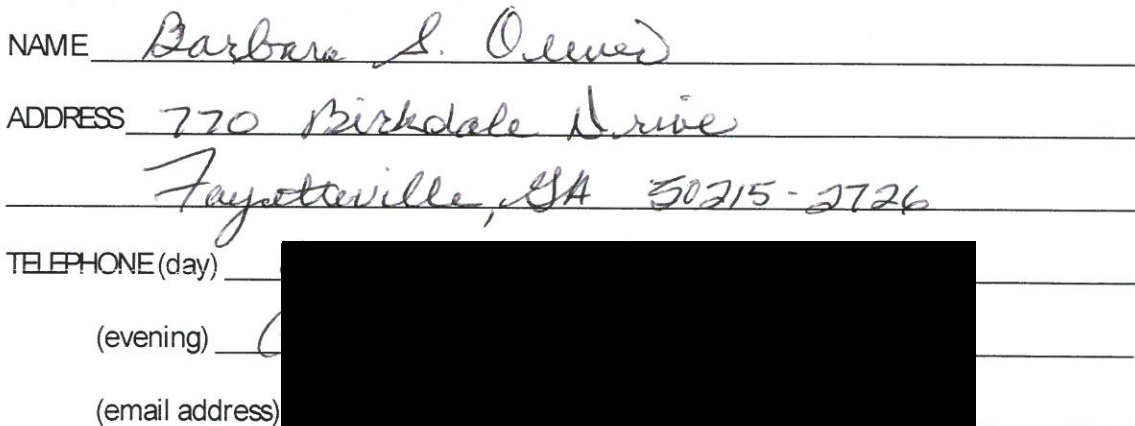 NAME Barbara S.
ADDRESS 770 Birkdale Drive
Fayetteville, GA 30215-2726
TELEPHONE (day)
(evening) (
(email address)